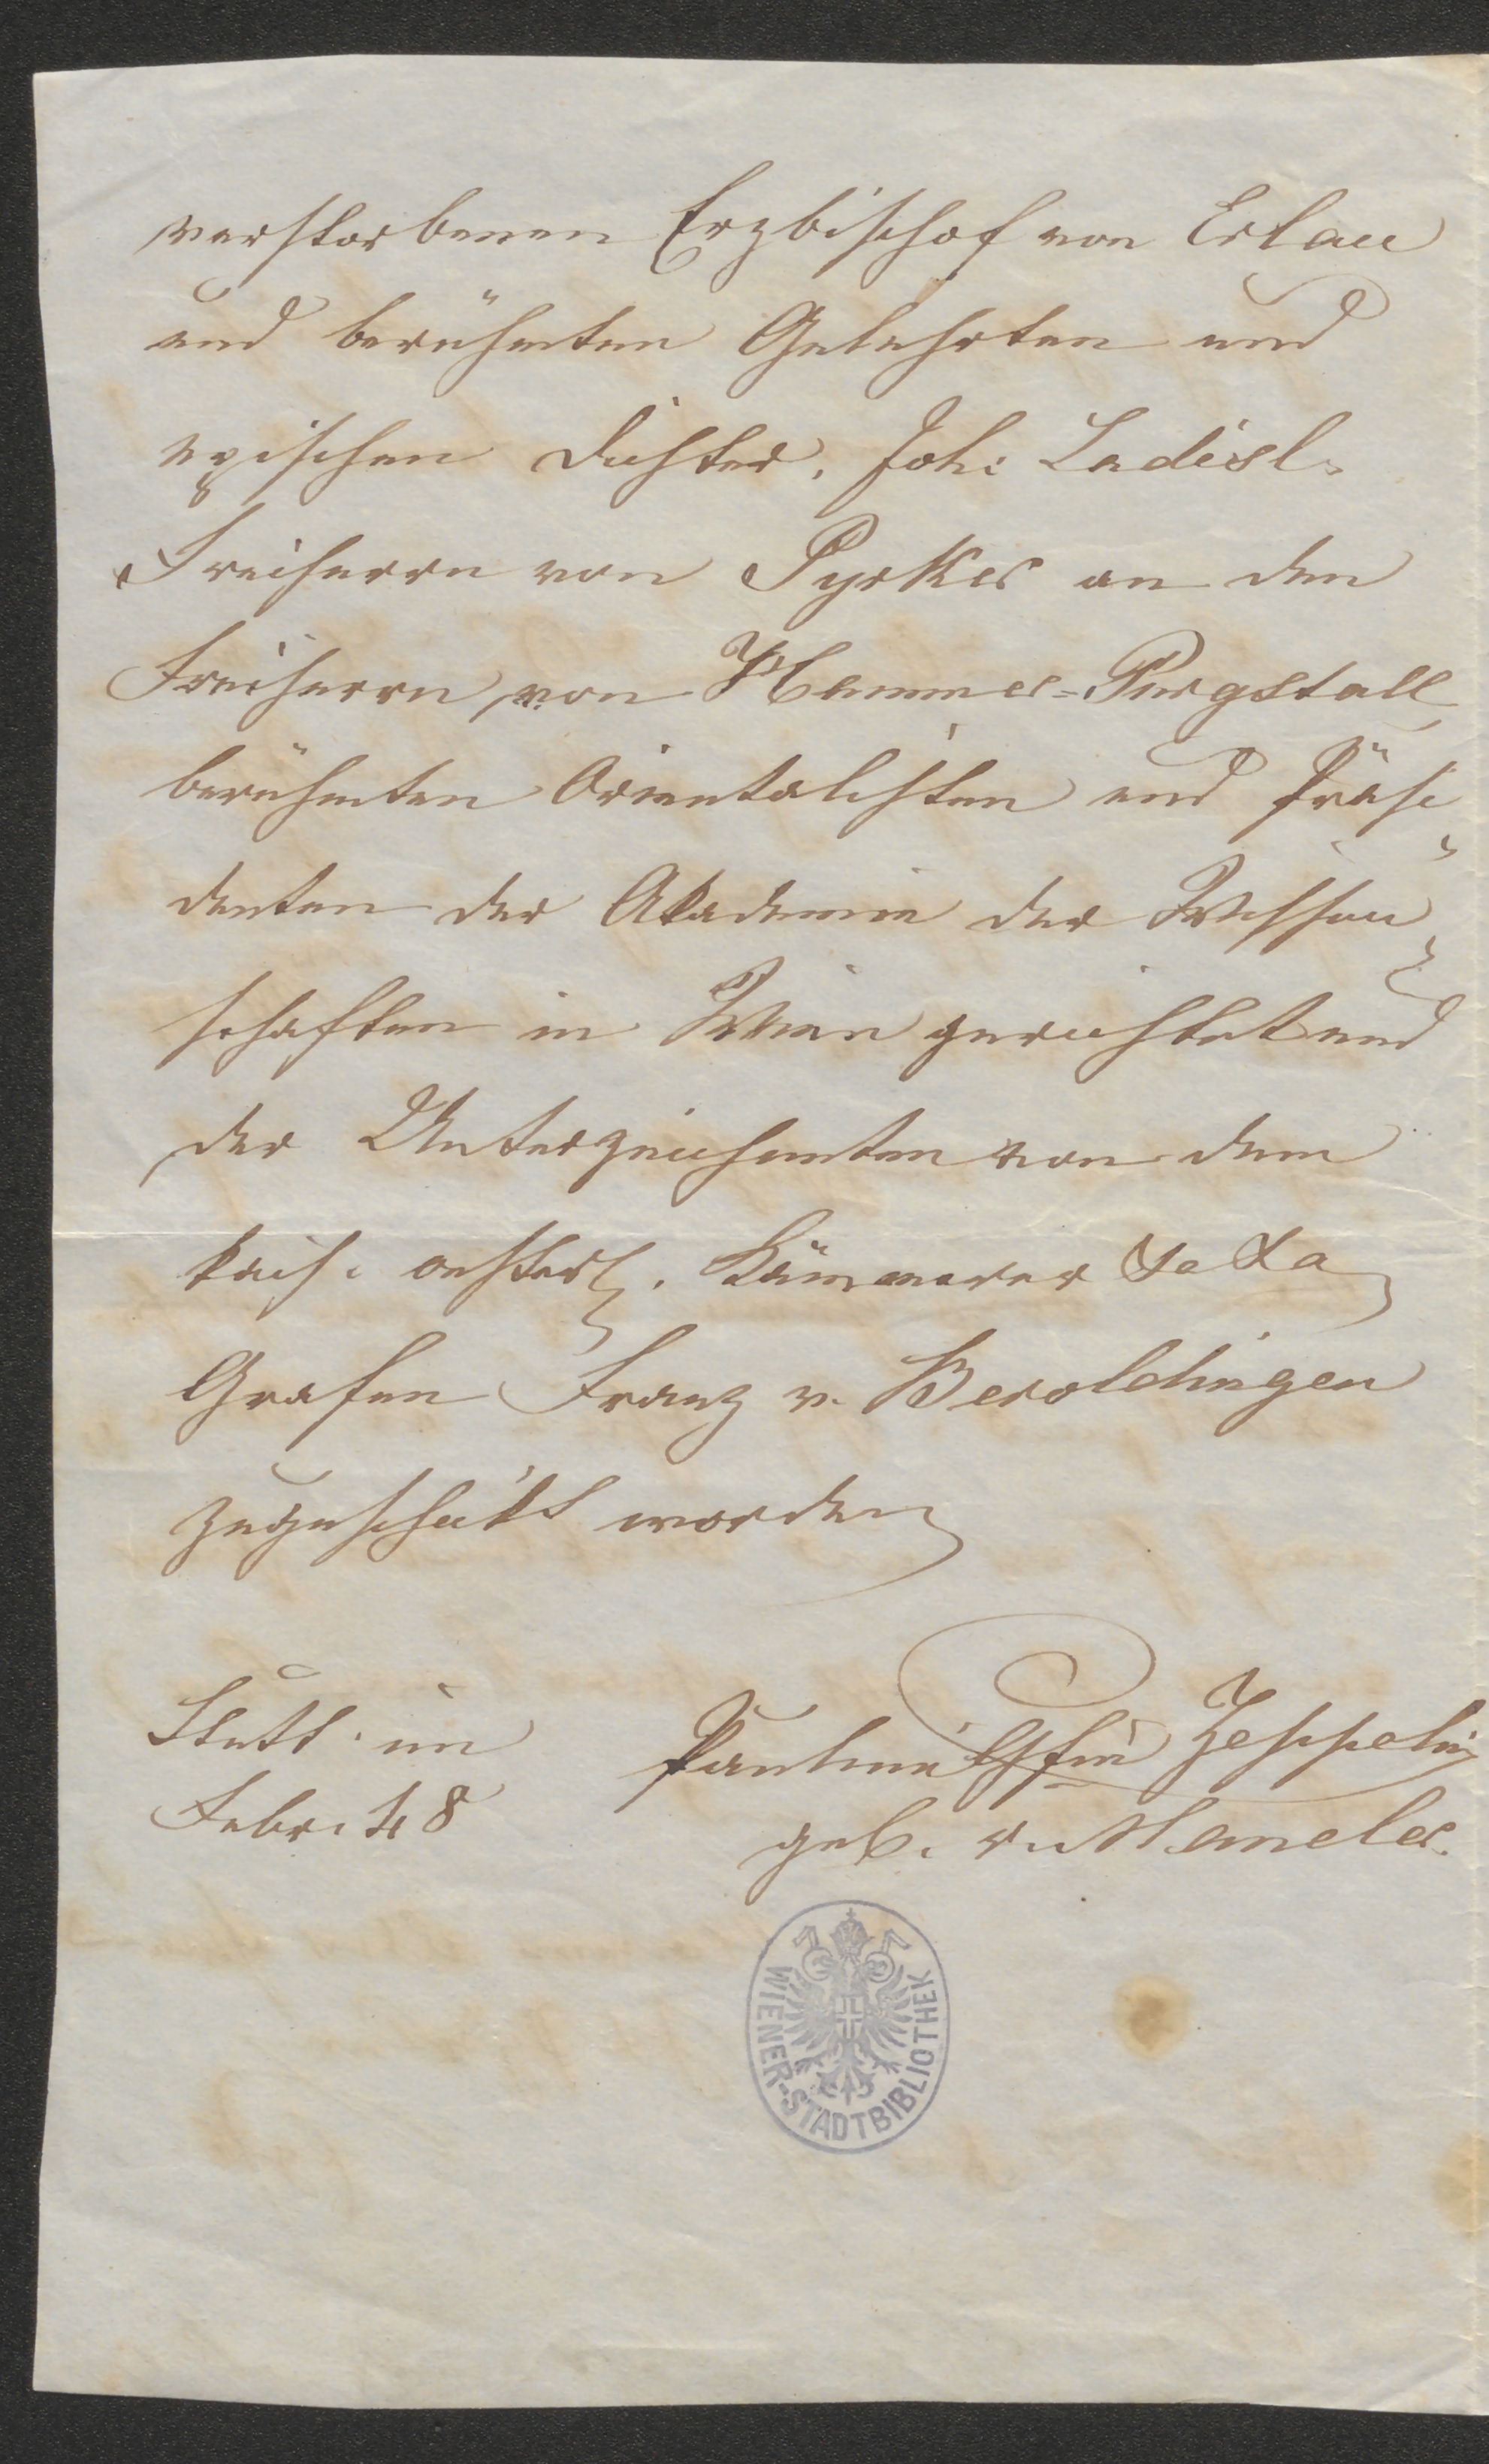 verstorbenen Erzbischof von Erlau
und berühmten Gelehrten und
epischen Dichter, Joh: Ladisl.
Freiherrn von Pyrker an den
Freiherrn von Hammer=Purgstall
berühmten Orientalisten und Präsi
denten der Akademie der Wissen
schaften in Wien gerichtet und
der Unterzeichneten von dem
kais. oesterr. Kämmerer &a &a
Grafen Franz v. Beroldingen
zugeschikt worden
Stutt. im
Febr. 48
Pauline Gfin Zeppelin
geb. v. Maucler.
WIENER-STADTBIBLIOTHEK